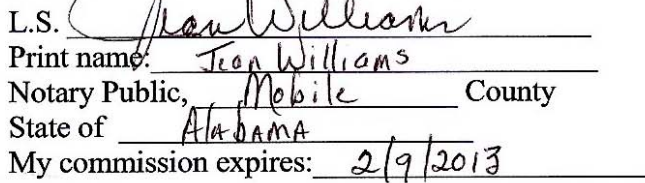 L.S. Jean Williams
Print name: Jean Williams
Notary Public, Mobile County
State of AlabAMA
My commission expires: 2/9/2013